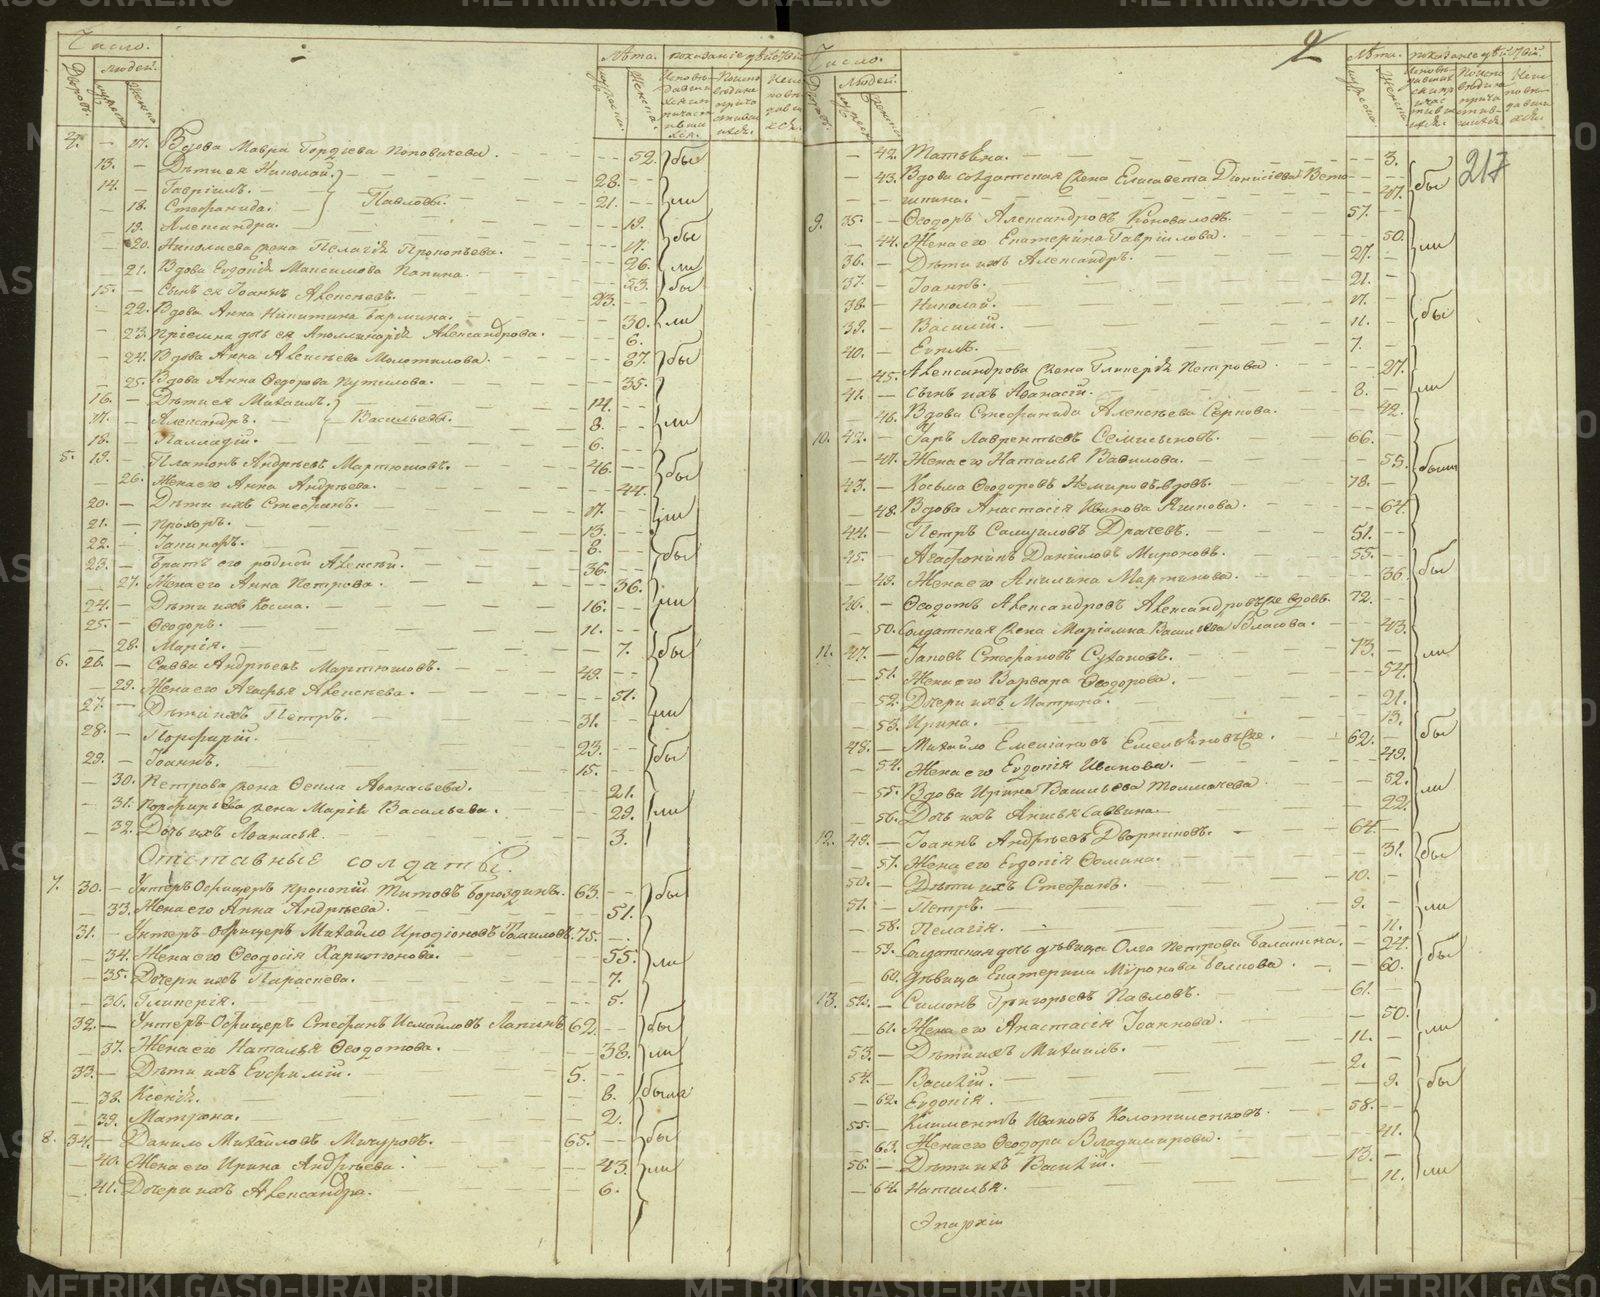 Число.
Дворовъ.
Людей.
Мужеска.
Женска.
Лѣта.
Мужеска.
Женска.
показаніе дѣйствій
4. — 17. Вдова Мавра Гордѣева Поповичева. — — 52. бы
13. — Дѣти ея Николай. — 28. — ли
14. — Гавріилъ. — Павловы. 21. —
— 18. Стефанида. — 19.
— 19. Александра. — 17. бы
— 20. Николаева жена Пелагія Прокопьева. — 26. ли
— 21. Вдова Евдокія Максимова Папина. — 53. бы
15. — Сынъ ея Іоаннъ Алексѣевъ. — 23. —
— 22. Вдова Анна Никитина — 30. ли
— 23. Пріемна дочь ея Аполлинарія Александрова. — 6.
— 24. Вдова Анна Алексѣева Молотилова. — 67. бы
— 25. Вдова Анна Ѳедорова Путилова. — 35.
16. — Дѣти ея Михаилъ. 14. —
17. — Александръ. — Васильевы. 8. — ли
18. — Палладій. — 6. —
5. 19. — Платонъ Андрѣевъ Мартюшовъ. — 46. — бы
— 26. Жена его Анна Андрѣева. — 44.
20. — Дѣти ихъ Стефанъ. — 17. — ли
21. — Прохоръ. — 13. —
22. — Никаноръ. — 8. — бы
23. — Братъ его родной Алексѣй. — 36. —
— 27. Жена его Анна Петрова. — 36.
24. — Дѣти ихъ Косма. — 16. — ли
25. — Ѳеодоръ. — 11. —
— 28. Марія. — 7. бы
6. 26. — Савва Андрѣевъ Мартюшовъ. — 49. —
— 29. Жена его Агафья Алексѣева. — 51.
27. — Дѣти ихъ Петръ. — 31. — ли
28. — Порфирій. — 23. —
29. — Іоаннъ. — 15. — бы
— 30. Петрова жена Ѳекла Аѳанасьева. — 21.
— 31. Порфирьева жена Марія Васильева. — 29. ли
— 32. Дочь ихъ Аѳанасья. — 3.
Отставные солдаты.
7. 30. — Унтеръ Офицеръ Прокопій Титовъ Бороздинъ. 63. — бы
— 33. Жена его Анна Андрѣева. — 51.
31. — Унтеръ-Офицеръ Михайло Иродіоновъ 75. —
— 34. Жена его Ѳеодосія Харитонова. — 55. ли
— 35. Дочери ихъ Параскева. — 7.
— 36. Гликерія. — 5.
32. — Унтеръ-Офицеръ Стефанъ Исмаиловъ Лапинъ 62. — бы
— 37. Жена его Наталья Ѳеодотова. — 38. ли
33. — Дѣти ихъ Евфимій. — 5. —
— 38. Ксенія. — 8. были
— 39. Матрона. — 2.
8. 34. — Данило Михайловъ Мичуровъ. — 65. — бы
— 40. Жена его Ирина Андрѣева. — 43. ли
— 41. Дочери ихъ Александра. — 6.
2
217
Число.
Дворовъ.
Людей.
Лѣта.
показаніе дѣйствій
— 42. Татьяна. — 3.
— 43. Вдова солдатская жена Елисавета Денисьева Вето- бы
шкина. — 47.
9. 35. — Ѳеодоръ Александровъ Коноваловъ. — 57. —
— 44. Жена его Екатерина Гавріилова. — 50. ли
36. — Дѣти ихъ Александръ. — 27. —
37. — Іоаннъ. — 21. —
38. — Николай. — 17. —
39. — Василій. — 11. — бы
40. — Еупль. — 7. —
— 45. Александрова жена Гликерія Петрова — 27.
41. — Сынъ ихъ Аѳанасій. — 8. — ли
— 46. Вдова Стефанида Алексѣева Серкова. — 42.
10. 42. — Уаръ Лаврентьевъ Семисыновъ. — 66. —
— 47. Жена его Наталья Вавилова. — 55. были
43. — Косьма Ѳеодоровъ Немировъ вдовъ. — 78. —
— 48. Вдова Анастасія Иванова Ягипова. — 64.
44. — Петръ Самуиловъ Драчевъ. — 51. —
45. — Агафоникъ Даниловъ Мироновъ. — 55. — бы
— 49. Жена его Акилина Мартинова. — 36.
46. — Ѳеодотъ Александровъ вдовъ. 72. —
— 50. Солдатская жена Маріамна Васильева Власова. — 43.
11. 47. — Іаковъ Стефановъ Сухановъ. — 73. — ли
— 51. Жена его Варвара Ѳеодорова. — 54.
— 52. Дочери ихъ Матрона. — 21.
— 53. Ирина. — 13.
48. — Михайло Емельяновъ — 62. — бы
— 54. Жена его Евдокія Иванова. — 49.
— 55. Вдова Ирина Васильева Толмачева — 52. ли
— 56. Дочь ихъ Анисья Саввина. — 22.
12. 49. — Іоаннъ Андрѣевъ Дворниковъ. — 64. —
— 57. Жена его Евдокія Ѳомина. — 31. бы
50. — Дѣти ихъ Стефанъ. — 10. —
51. — Петръ. — 9. — ли
— 58. Пелагія. — 11.
— 59. Солдатская дочь дѣвица Олга Петрова Балакина. — 24. бы
— 60. Дѣвица Екатерина Миронова Белкова. — 60.
13. 52. — Симонъ Григорьевъ Павловъ. — 61. —
— 61. Жена его Анастасія Іоаннова. — 50. ли
53. — Дѣти ихъ Михаилъ. — 11. —
54. — Василій. — 2. —
— 62. Евдокія. — 9. бы
55. — Климентъ Ивановъ Колотиленковъ. — 58. —
— 63. Жена его Ѳеодора Владимирова. — 41.
56. — Дѣти ихъ Василій. — 13. —
— 64. Наталья. — 11. ли
Епархіи